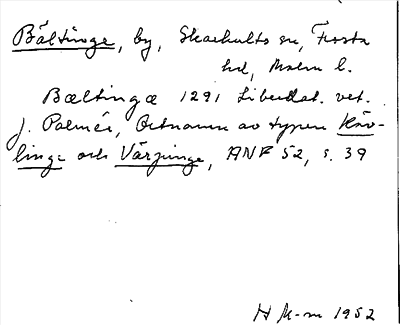 Bältinge, by, Skarhults sn, Frosta
hd, Malm l.
Bæltingæ 1291 Liberdat. vet.
J. Palmér, Ortnamn av typen Käv-
linge och Värpinge, ANF 52, s. 39
H M-m 1952